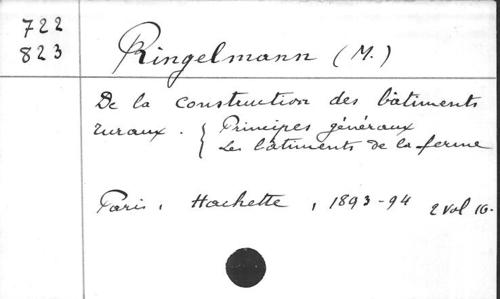 722
823
Ringelmann (M.)
De la construction des bâtiments
ruraux. { Principes généraux
Les bâtiments de la ferme
Paris, Hachette, 1893-94 2 vol 16.